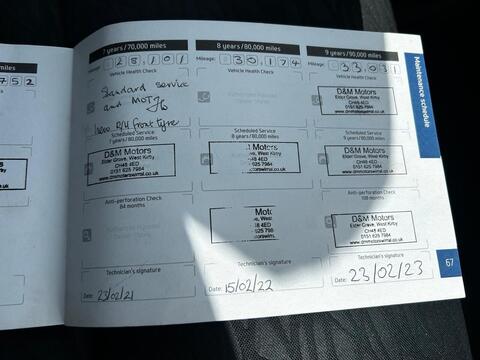 miles
7 5 2
7 years/70,000 miles
Mileage: 28,101
Vehicle Health Check
Standard service
and MOT
1 new R/H front tyre
Scheduled Service
7 years/70,000 miles
D&M Motors
Elder Grove, West Kirby
CH48 4ED
0151 625 7984
www.dmmotorswirral.co.uk
Anti-perforation Check
84 months
Technician's signature
Date: 23/02/21
8 years/80,000 miles
Mileage: 30,174
Vehicle Health Check
Scheduled Service
8 years/80,000 miles
Motors
West Kirby
48 4ED
625 7984
torswirral.co.uk
Moto
8 4ED
625 798
otorswirral.
Technician's signature
Date: 15/02/22
9 years/90,000 miles
Mileage: 33,031
Vehicle Health Check
D&M Motors
Elder Grove, West Kirby
CH48 4ED
0151 625 7984
www.dmmotorswirral.co.uk
Scheduled Service
9 years/90,000 miles
D&M Motors
Elder Grove, West Kirby
CH48 4ED
0151 625 7984
www.dmmotorswirral.co.uk
Anti-perforation Check
108 months
D&M Motors
Elder Grove, West Kirby
CH48 4ED
0151 625 7984
www.dmmotorswirral.co.uk
Technician's signature
Date: 23/02/23
Maintenance schedule
67